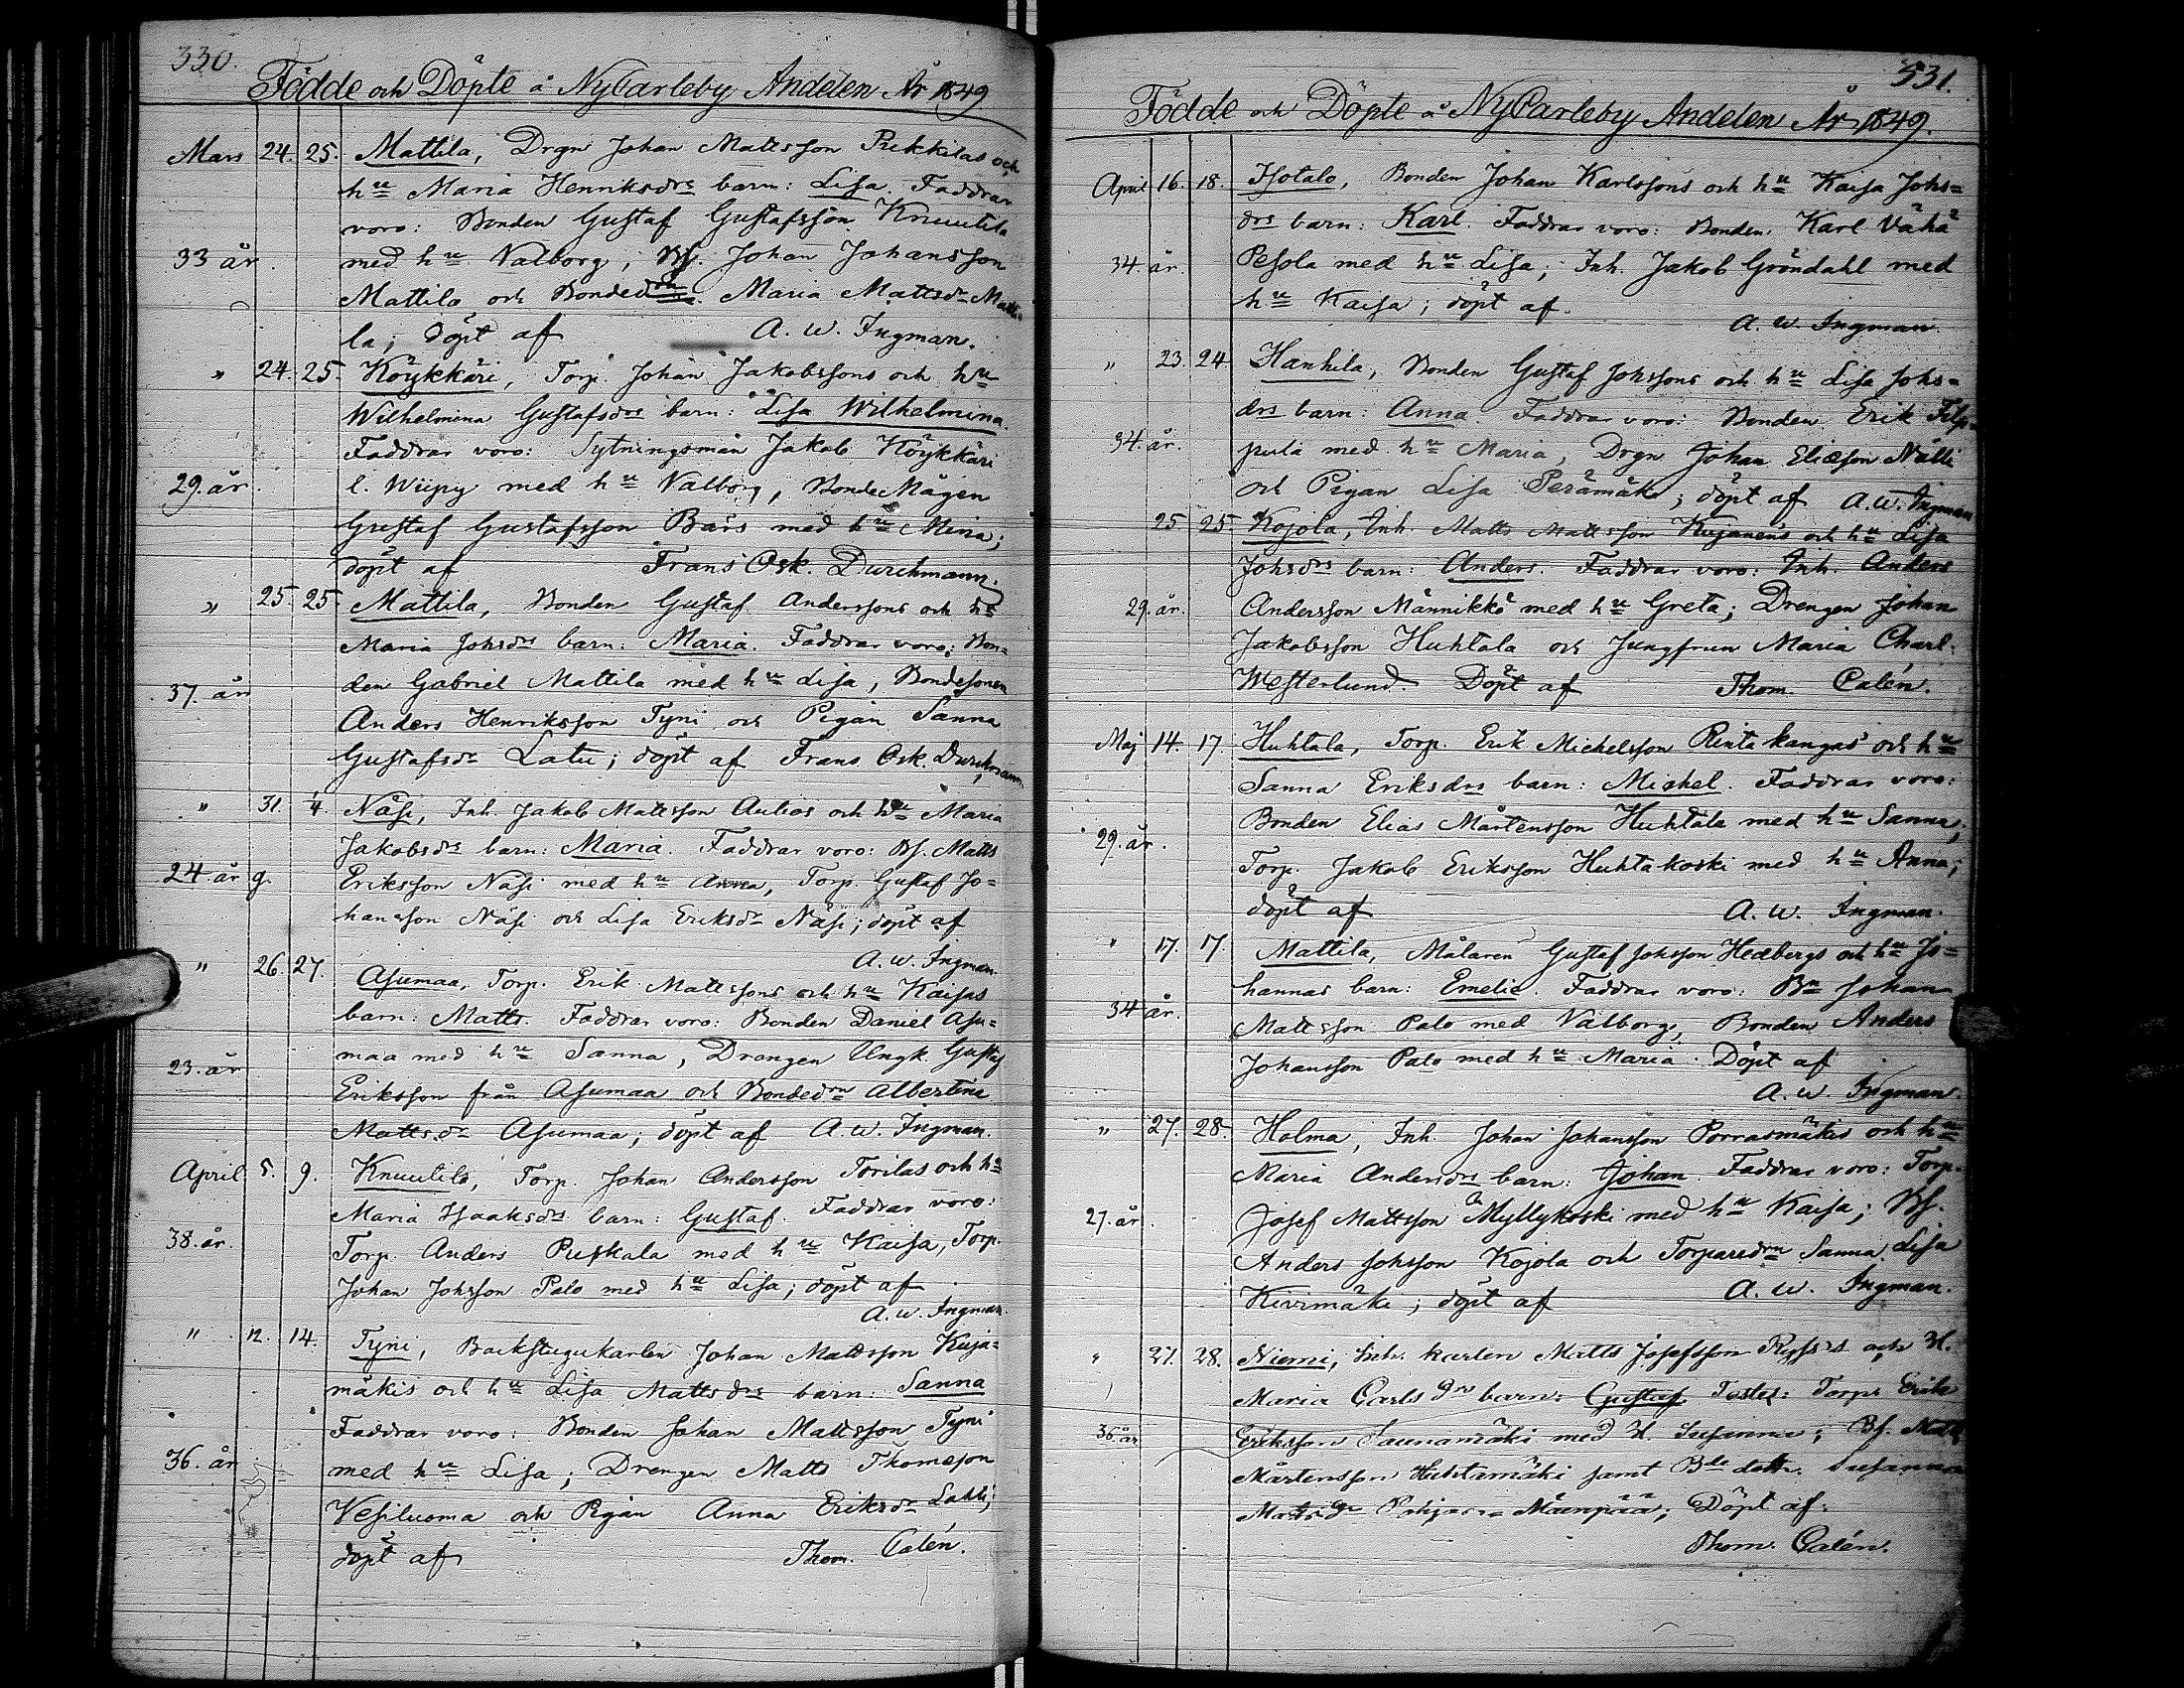 330.
Födde och Döpte å NyCarleby Andelen År 1849
Mars 24. 25. Mattila, Drgn Johan Mattsson Pukkilas och
hu Maria Henriksdrs barn: Lisa. Faddrar
voro: Bonden Gustaf Gustafsson Knuutila
33 år. med hu Valborg; Bs. Johan Johansson
Mattila och Bondedn Maria Mattsdr Matti-
la; döpt af A. W. Ingman.
" 24. 25. Köykkäri, Torp. Johan Jakobssons och hu
Wilhelmina Gustafsdrs barn: Lisa Wilhelmina.
Faddrar voro: Sytningsman Jakob Köykkäri
29. år. l. Wiipy med hu Valborg, BondeMågen
Gustaf Gustafsson Bärs med hu Mina;
döpt af Frans Osk. Durchmann.
" 25. 25. Mattila, Bonden Gustaf Anderssons och hu
Maria Johsdrs barn: Maria. Faddrar voro: Bon=
37. år den Gabriel Mattila med hu Lisa, Bondesonen
Anders Henriksson Tyni och Pigan Sanna
Gustafsdr Latu; döpt af Frans Osk. Durchmann
" 31. 4. Näsi, Inh. Jakob Mattsson Aulios och hu Maria
Jakobsdrs barn: Maria. Faddrar voro: Bs. Matts
24. år g. Eriksson Näsi med hu Anna, Torp. Gustaf Jo=
hansson Näsi och Lisa Eriksdr Näsi; döpt af
A. W. Ingman
" 26. 27. Asumaa, Torp. Erik Mattssons och hu Kaisas
barn: Matts. Faddrar voro: Bonden Daniel Asu=
23. år maa med hu Sanna, Drangen Ungk. Gustaf
Eriksson från Asumaa och Bondedn Albertina
Mattsdr Asumaa; döpt af A. W. Ingman.
April 5. 9. Knuutila, Torp. Johan Andersson Torilas och hu
Maria Isaaksdrs barn: Gustaf. Faddrar voro:
38. år. Torp. Anders Puskala med hu Kaisa, Torp.
Johan Johsson Palo med hu Lisa; döpt af
A. W. Ingman.
" 12. 14. Tyni, Backstugukarlen Johan Mattsson Kuja=
mäkis och hu Lisa Mattsdrs barn: Sanna
Faddrar voro: Bonden Johan Mattsson Tyni
36. år med hu Lisa; Drengen Matts Thomsson
Vesiluoma och Pigan Anna Eriksdr Lahti;
döpt af Thom. Calén.
531.
Födde och Döpte å NyCarleby Andelen År 1849.
April 16. 18. Isotalo, Bonden Johan Karlssons och hu Kaisa Johs=
drs barn: Karl. Faddrar voro: Bonden Karl Vähä
34. år. Pesola med hu Lisa; Inh. Jakob Gröndahl med
hu Kaisa; döpt af
A. W. Ingman.
" 23. 24 Hanhila, Bonden Gustaf Johssons och hu Lisa Johs=
drs barn: Anna. Faddrar voro: Bonden Erik Filp=
34. år. pula med hu Maria, Drgn Johan Eliæson Nälli
och Pigan Lisa Perämäki; döpt af A. W. Ingman
25 25 Kojola, Inh. Matts Mattsson Kujanens och hu Lisa
Johsdrs barn: Anders. Faddrar voro: Inh. Anders
29. år. Andersson Männikkö med hu Greta; Drengen Johan
Jakobsson Huhtala och Jungfrun Maria Charl.
Westerlund. Döpt af Thom. Calén.
Maj 14. 17. Huhtala, Torp. Erik Michelsson Rintakangas och hu
Sanna Eriksdrs barn: Michel. Faddrar voro:
Bonden Elias Mårtensson Huhtala med hu Sanna;
29. år. Torp. Jakob Eriksson Huhtakoski med hu Anna;
döpt af A. W. Ingman.
" 17. 17. Mattila, Målaren Gustaf Johsson Hedbergs och hu Jo=
hannas barn: Emelie. Faddrar voro: Bn Johan
34 år. Mattsson Palo med Valborg, Bonden Anders
Johansson Palo med hu Maria. Döpt af
A. W. Ingman.
" 27. 28. Holma, Inh. Johan Johansson Porrasmäkis och hu
Maria Andersdrs barn: Johan. Faddrar voro: Torp.
27. år. Josef Mattsson Myllykoski med hu Kaisa; Bs.
Anders Johsson Kojola och Torparedrn Sanna Lisa
Kivimäki; döpt af A. W. Ingman.
" 27. 28. Niemi, Inh. karlen Matts Josefsson och H.
Maria Carlsdrs barn: Gustaf Testes: Torpr Erik
36. år Eriksson Saunamäki med H. Susanna; Bs. Matts
Mårtensson Huhtamäki samt Bde dottr. Susanna
Mattsdr Mäenpää; Döpt af:
Thom. Calén.